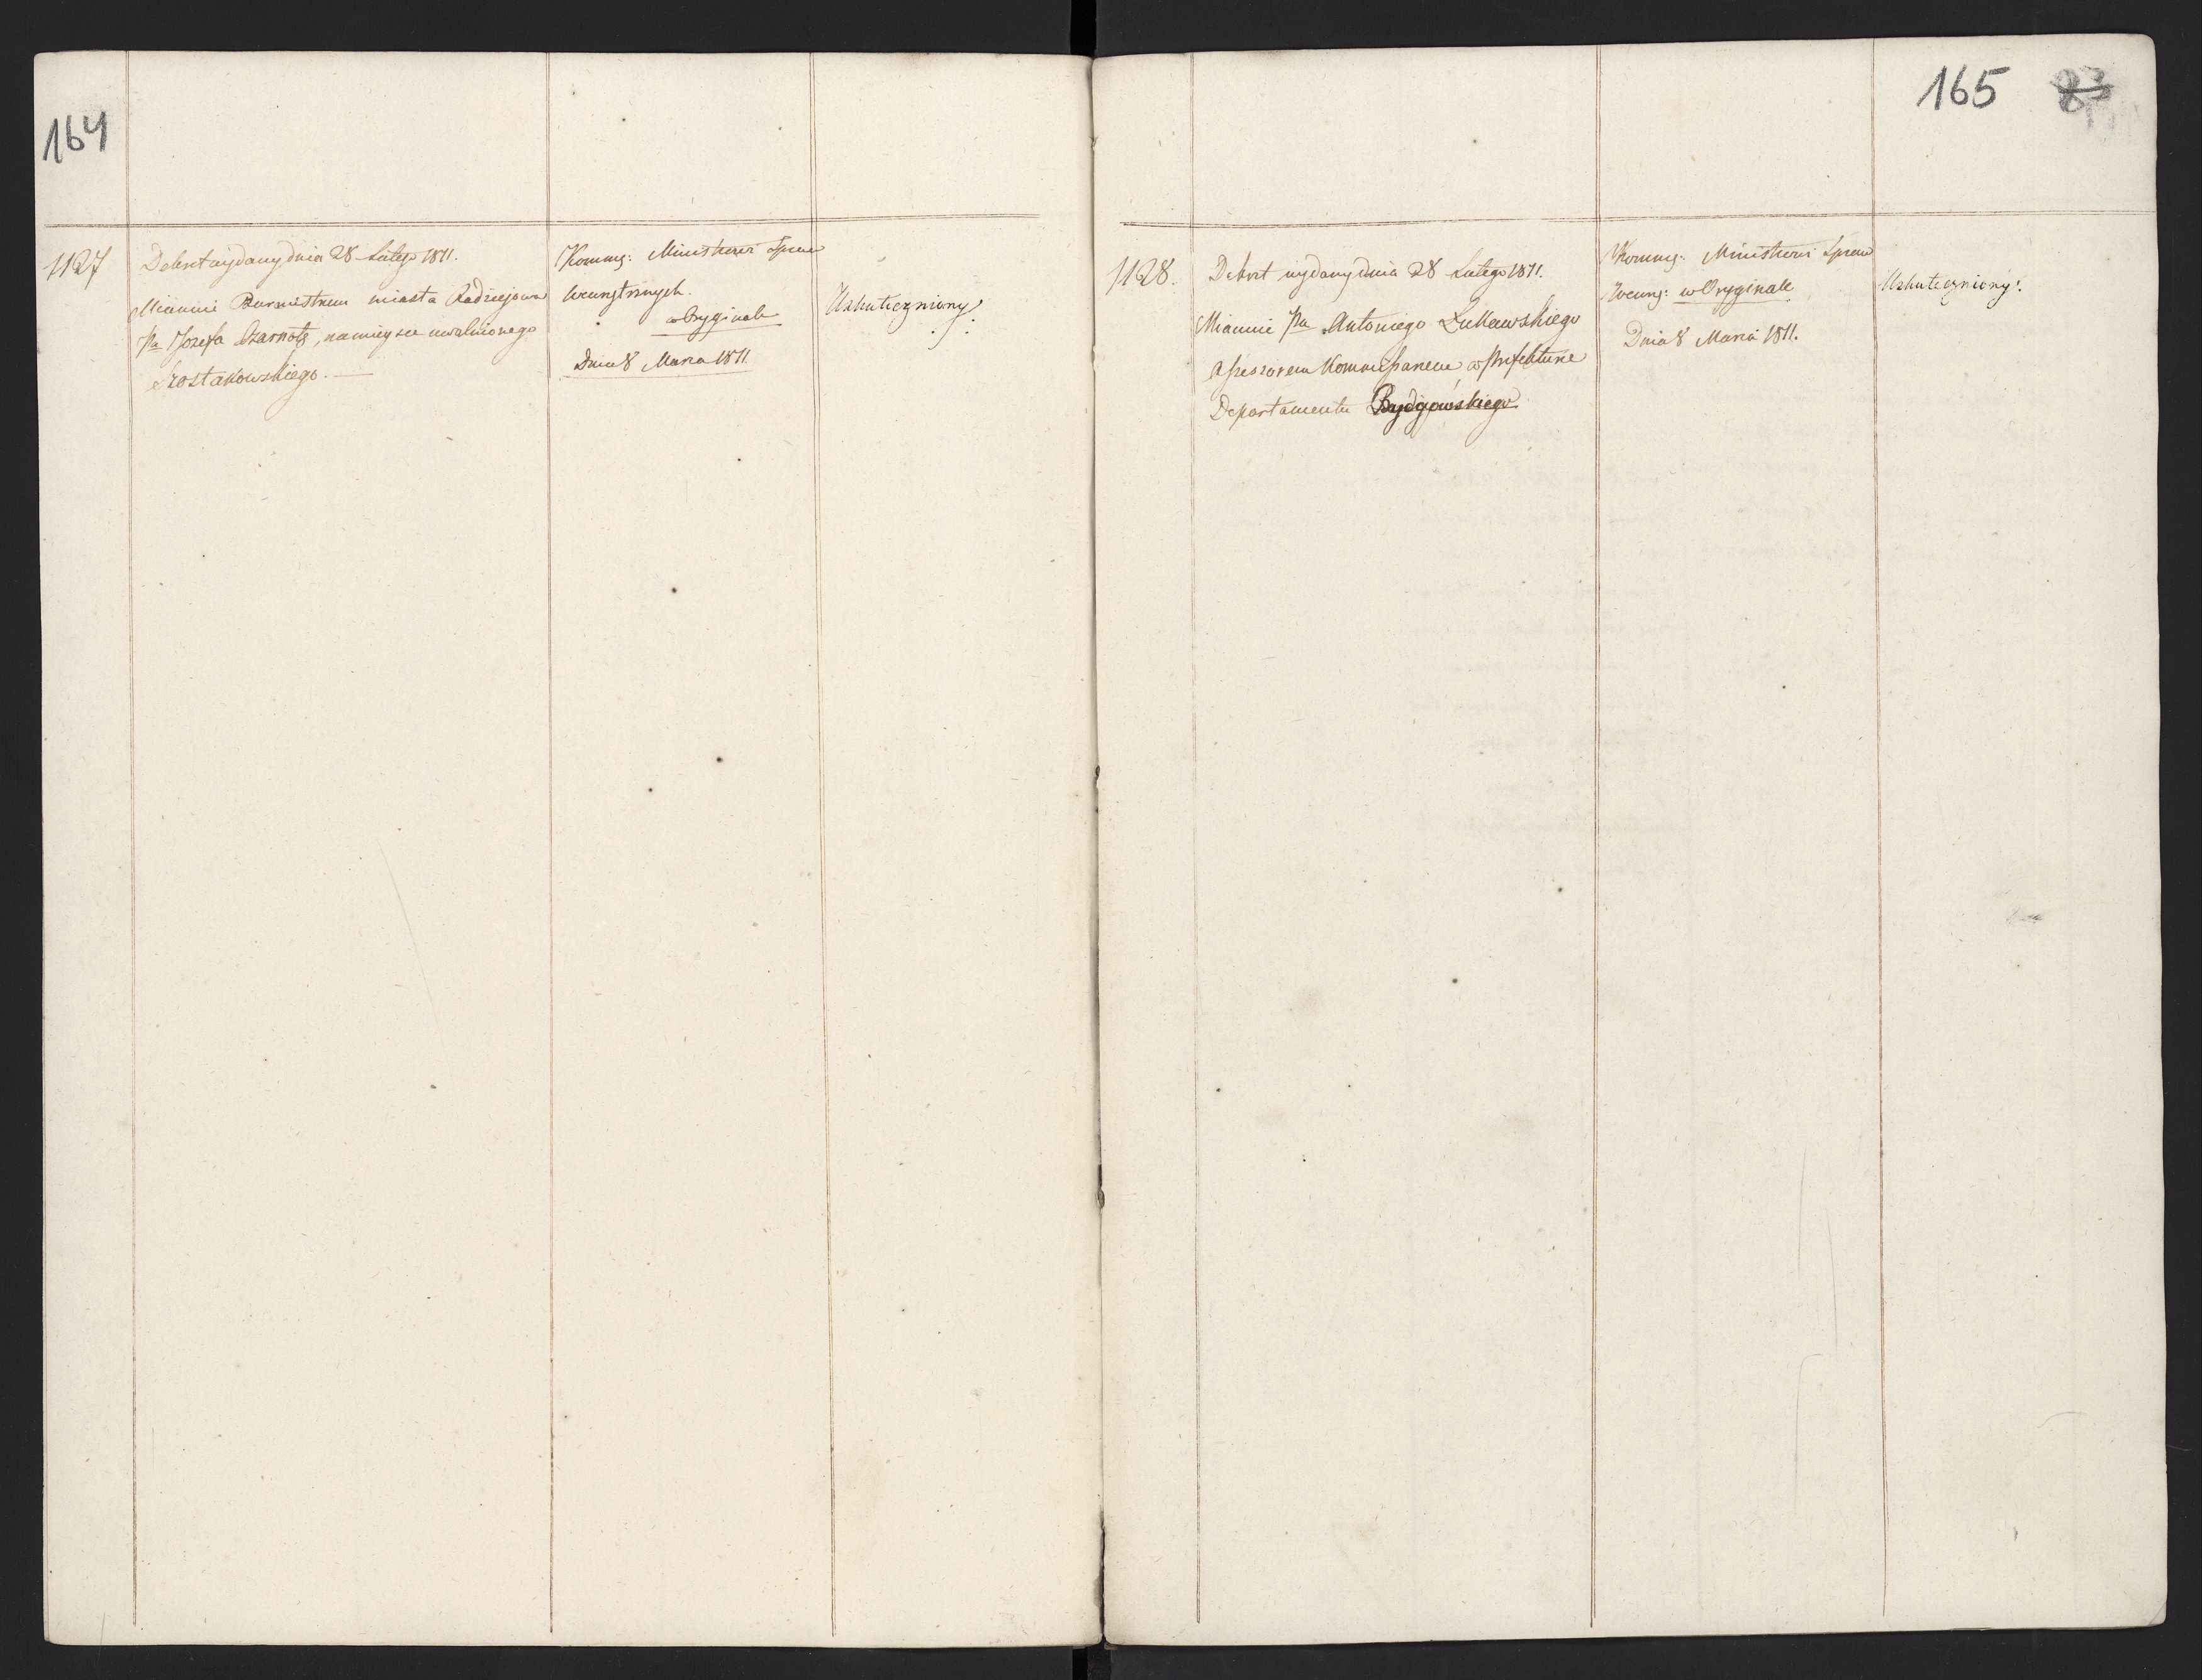 164
1127
Dekret wydany dnia 28 Lutego 1811.
Mianuie Burmistrzem miasta Radziejowa
Pa Jozefa Czarnotę, na mieysce uwolnionego
Szostakowskiego. —
Kommu: Ministrowi Spraw
Wewnętrznych.
w Oryginale
Dnia 8 Marca 1811.
Uskuteczniony.
165 83
1128.
Dekret wydany dnia 28 Lutego 1811.
Mianuie Pa Antoniego Łukawskiego
Assessorem Kommissarzem w Prefekturze
Departamentu Bydgowskiego
Kommu: Ministrowi Spraw
Wewnę: w Oryginale
Dnia 8 Marca 1811.
Uskuteczniony.